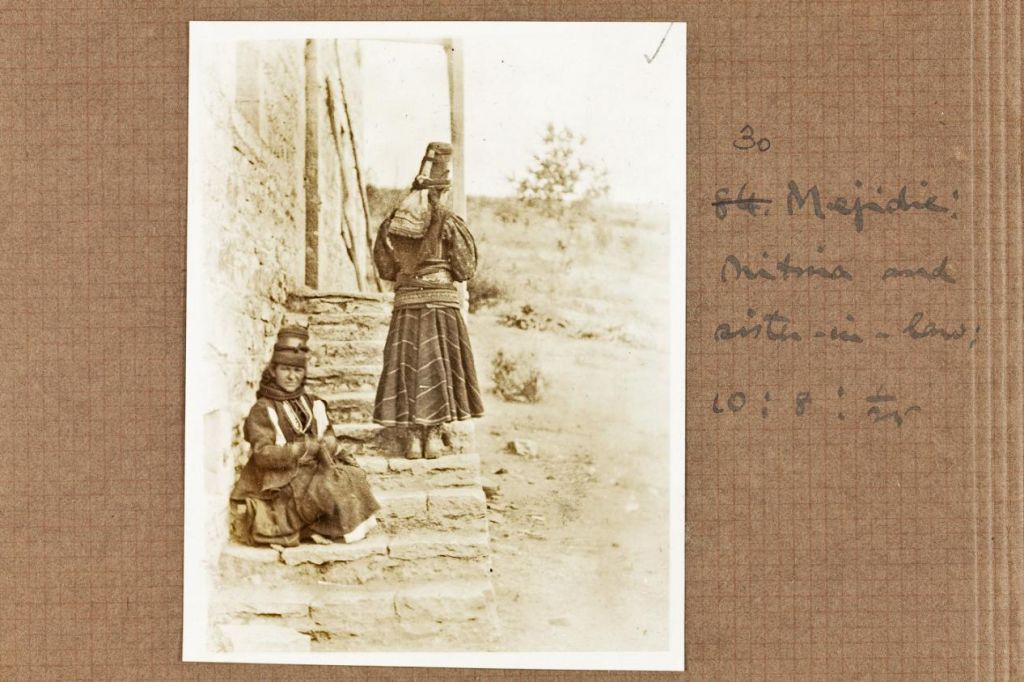 30
84. Mejidie:
and
sister-in-law;
10 : 8 : 1/25